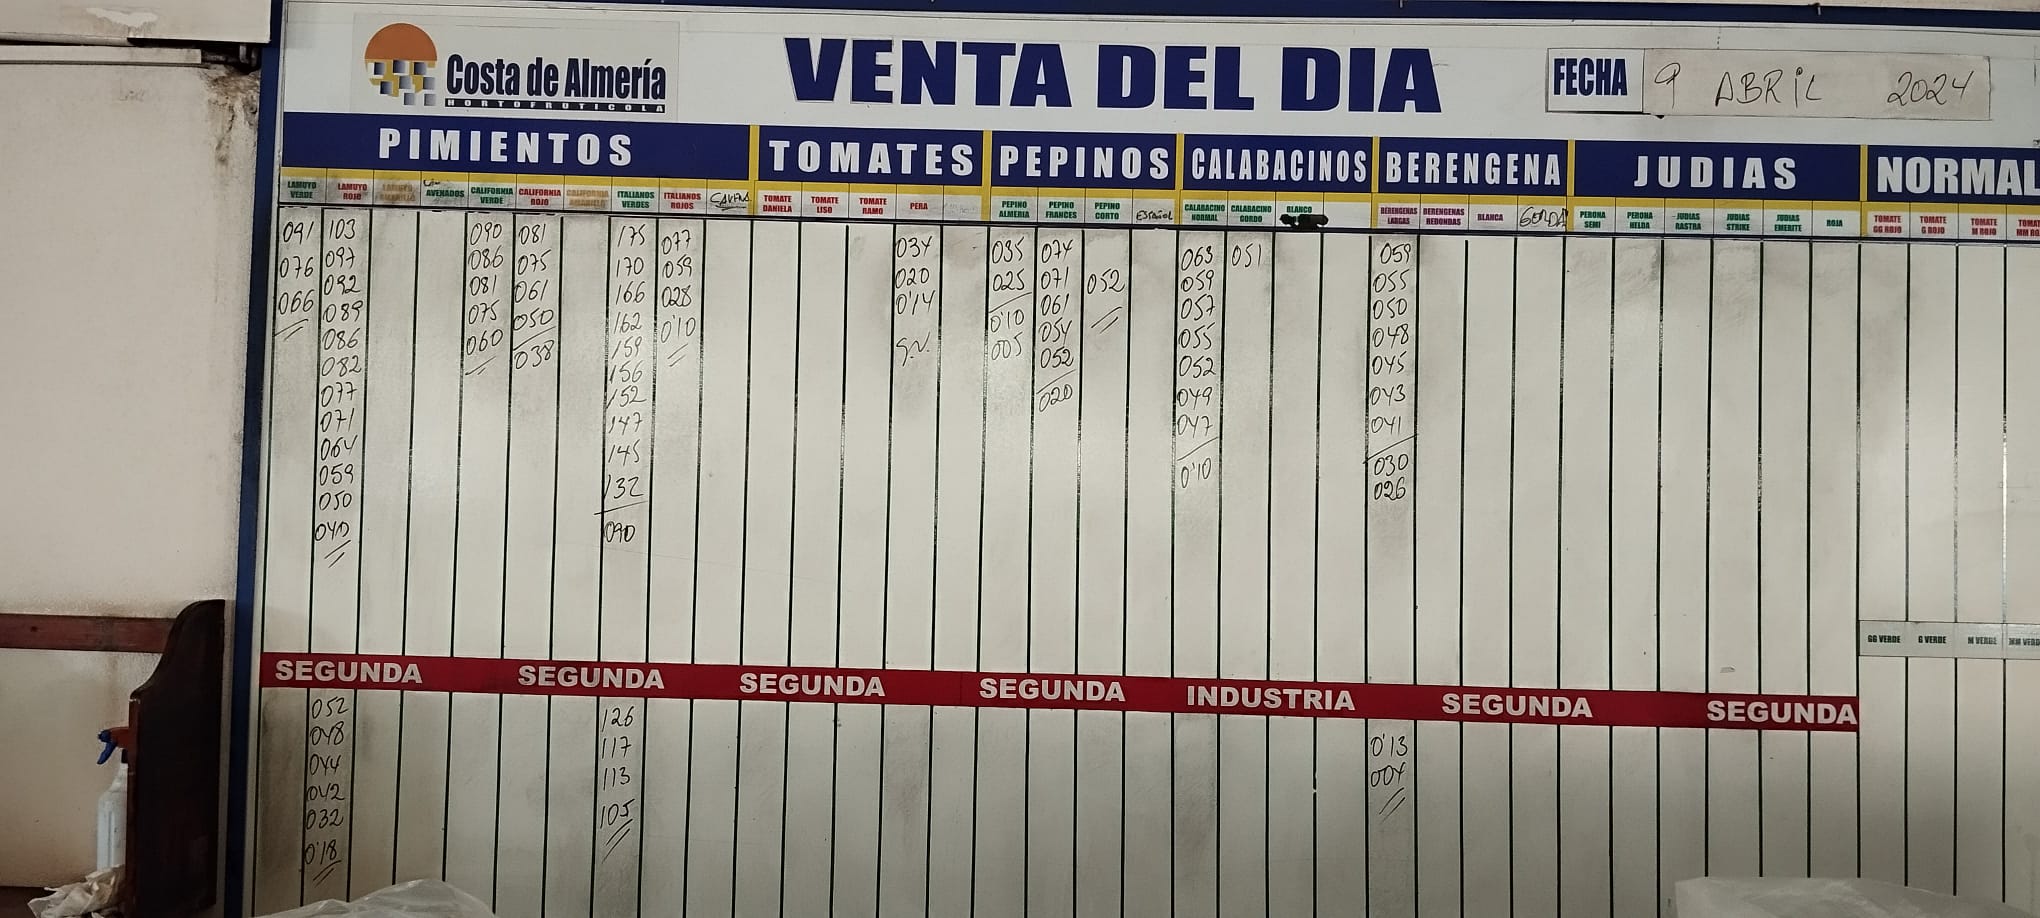 Costa de Almería
HORTOFRUTICOLA
VENTA DEL DIA
FECHA 9 ABRIL 2024
PIMIENTOS TOMATES PEPINOS CALABACINOS BERENGENA JUDIAS NORMAL
LAMUYO VERDE
LAMUYO ROJO
LAMUYO AMARILLO
AVENADOS
CALIFORNIA VERDE
CALIFORNIA ROJO
CALIFORNIA AMARILLO
ITALIANOS VERDES
ITALIANOS ROJOS
TOMATE DANIELA
TOMATE LISO
TOMATE RAMO
PERA
PEPINO ALMERIA
PEPINO FRANCES
PEPINO CORTO
ESPAÑOL
CALABACINO NORMAL
CALABACINO GORDO
BLANCO
BERENGENAS LARGAS
BERENGENAS REDONDAS
BLANCA
GORDA
PERONA SEMI
PERONA HELDA
JUDIAS RASTRA
JUDIAS STRIKE
JUDIAS EMERITE
ROJA
TOMATE GG ROJO
TOMATE G ROJO
TOMATE M ROJO
091
076
066
103
097
092
089
086
082
077
071
064
059
050
040
090
086
081
075
060
081
075
061
050
038
175
170
166
162
159
156
152
147
145
132
090
077
059
028
0'10
034
020
0'14
035
025
0'10
005
074
071
061
054
052
020
052
063
059
057
055
052
049
047
0'10
051
059
055
050
048
045
043
041
030
026
GG VERDE G VERDE M VERDE
SEGUNDA SEGUNDA SEGUNDA SEGUNDA INDUSTRIA SEGUNDA SEGUNDA
052
048
044
042
032
0'18
126
117
113
105
0'13
004